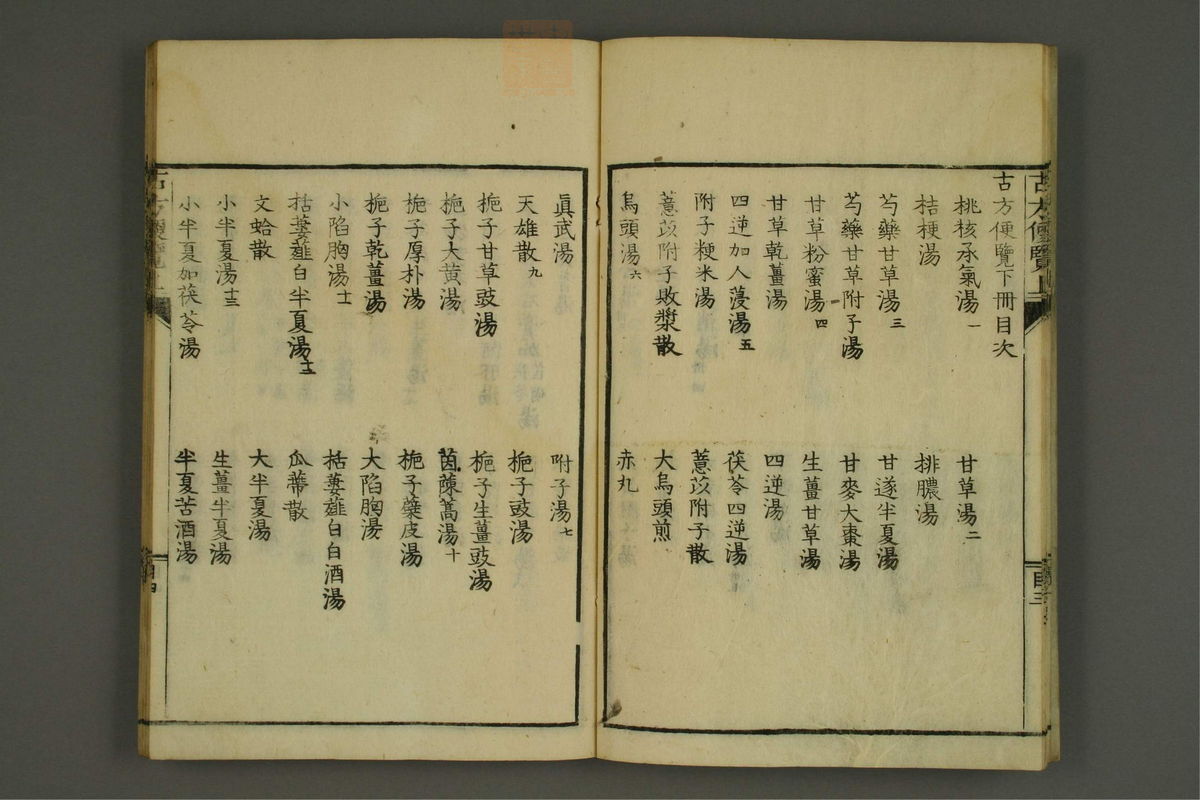 古方便覽下冊目次
桃核承氣湯一 甘草湯二
桔梗湯 排膿湯
芍藥甘草湯三 甘遂半夏湯
芍藥甘草附子湯 甘麥大棗湯
甘草粉蜜湯四 生薑甘草湯
甘草乾薑湯 四逆湯
四逆加人薓湯五 茯苓四逆湯
附子粳米湯 薏苡附子散
薏苡附子敗漿散 大烏頭煎
烏頭湯六 赤丸
眞武湯 附子湯七
天雄散九 梔子豉湯
梔子甘草豉湯 梔子生薑豉湯
梔子大黄湯 茵蔯蒿湯十
梔子厚朴湯 梔子蘗皮湯
梔子乾薑湯 大陷胸湯
小陷胸湯十一 括蔞薤白白酒湯
括蔞薤白半夏湯十二 瓜蔕散
文蛤散 大半夏湯
小半夏湯十三 生薑半夏湯
小半夏加茯苓湯 半夏苦酒湯
古方便覽上
目三